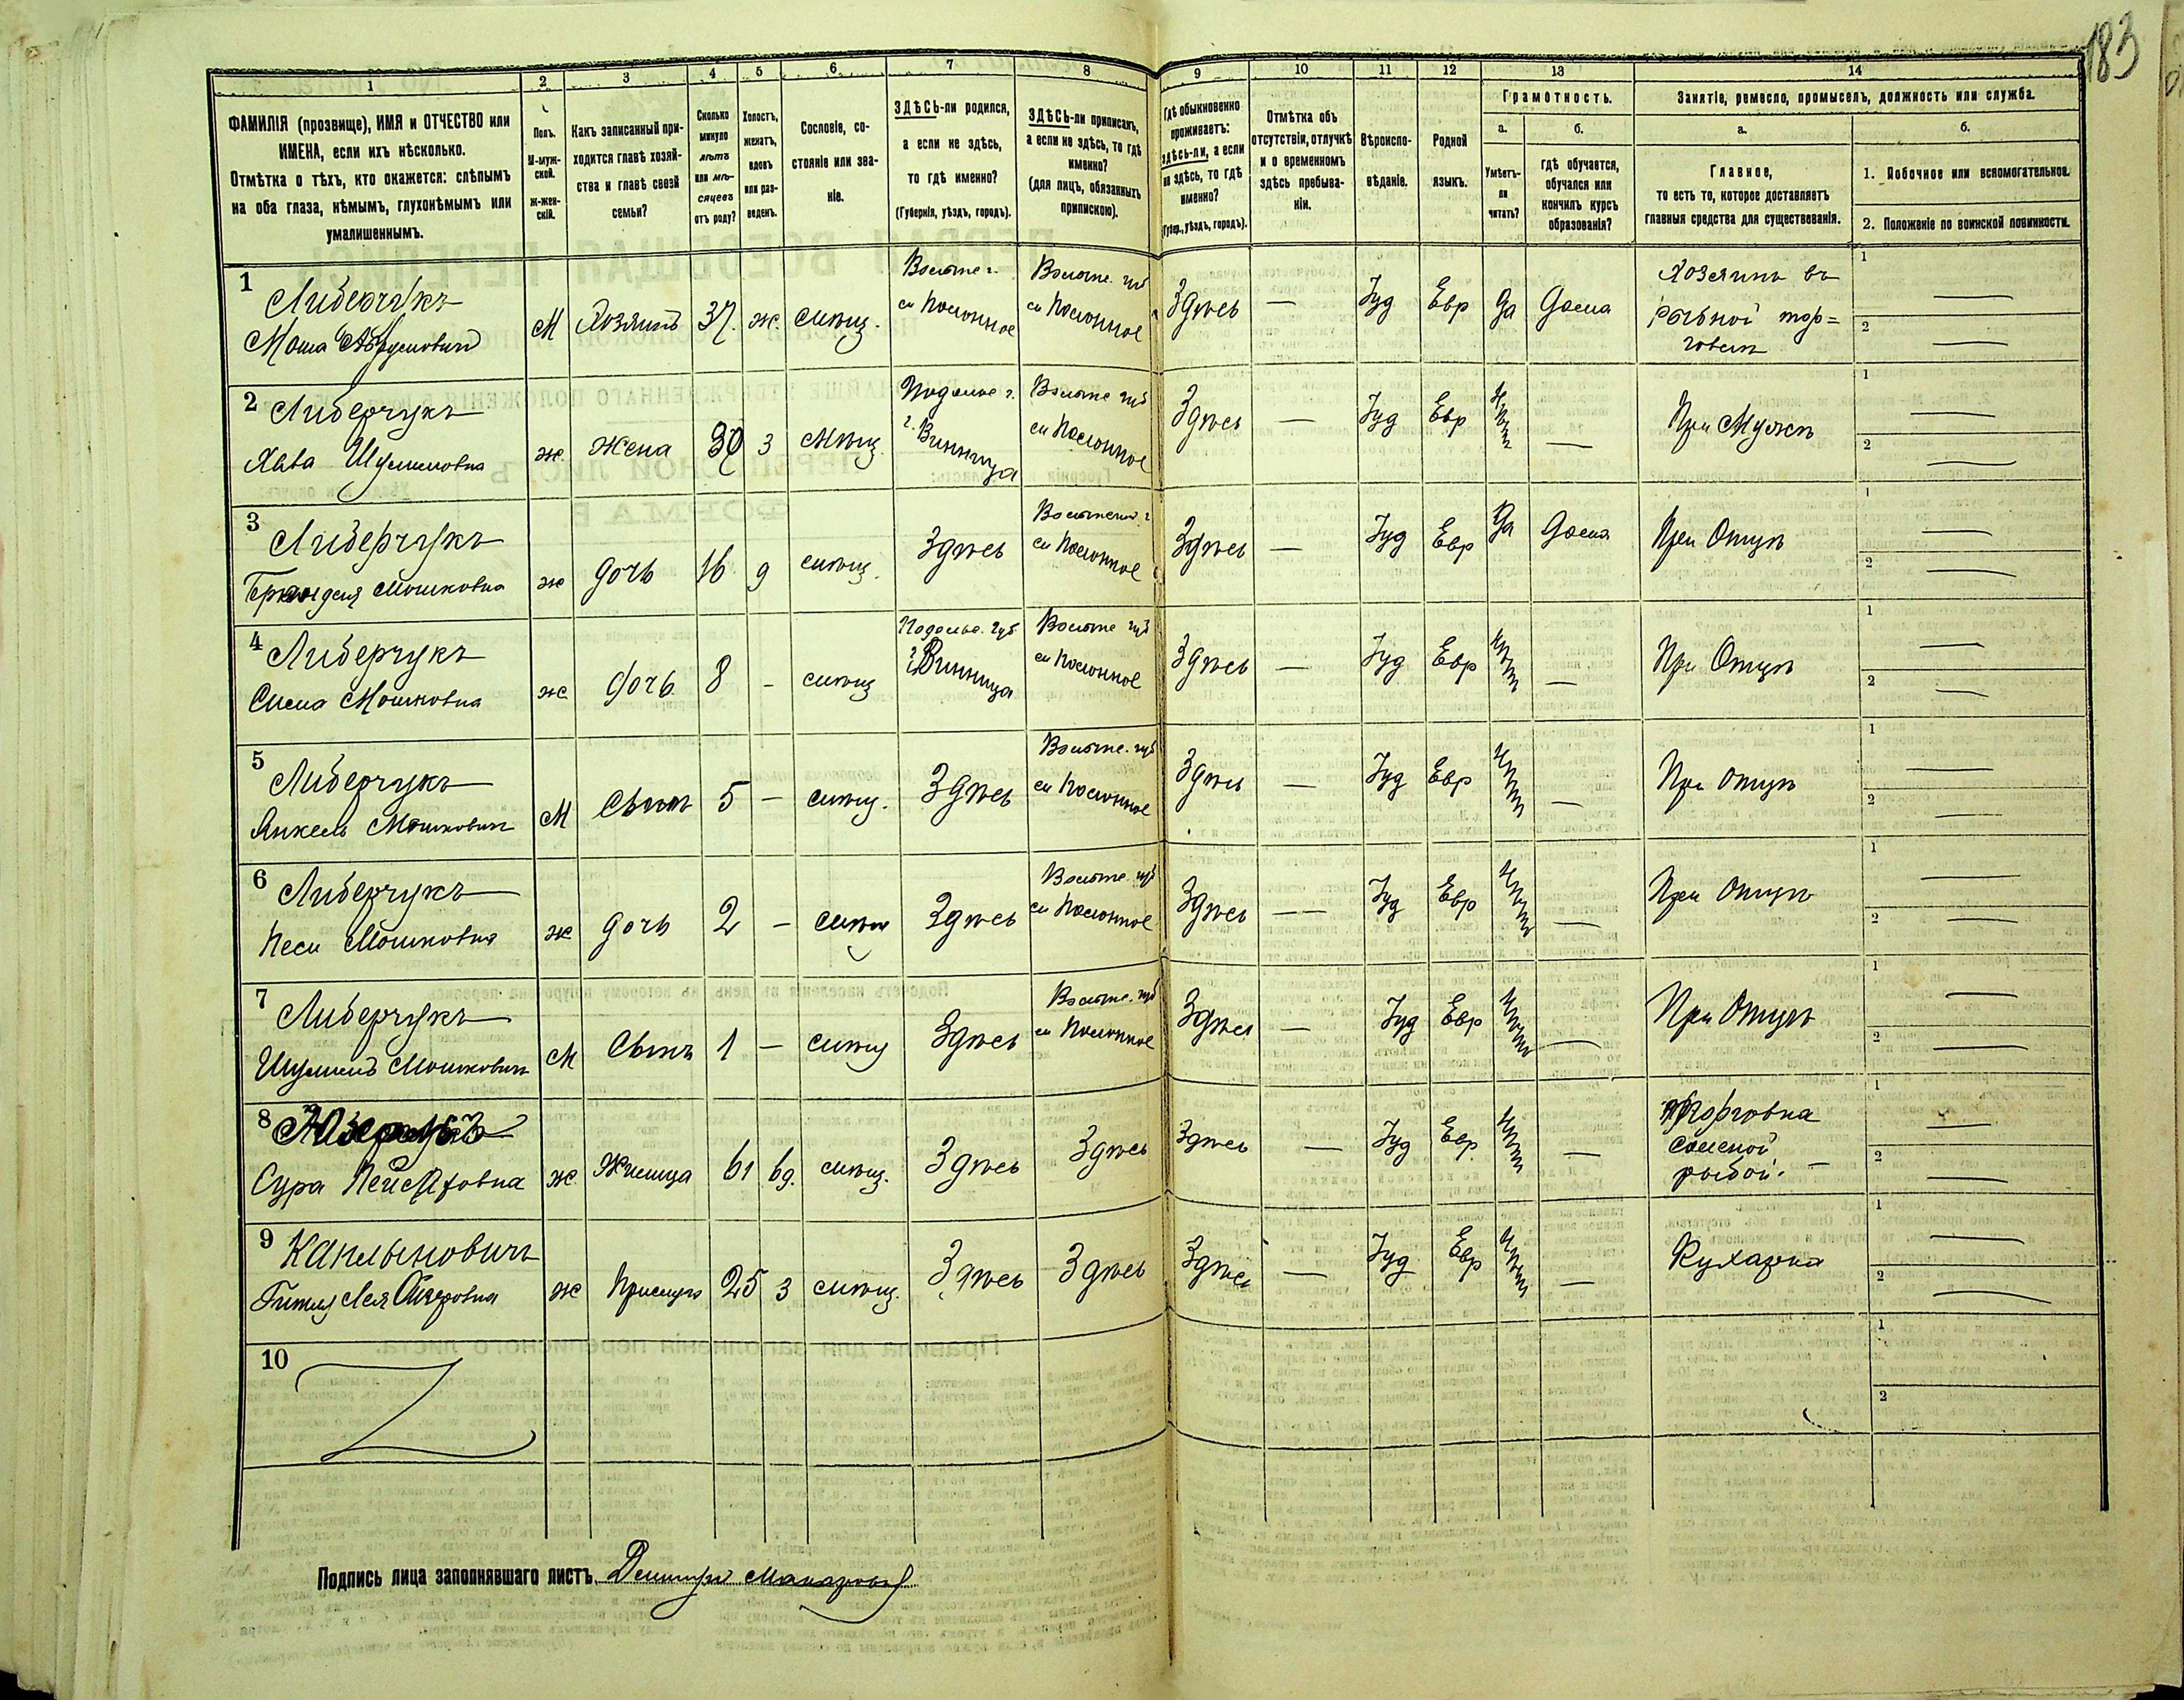 183
1 2 3 4 5 6 7 8 9 10 11 12 13 14
ФАМИЛІЯ (прозвище), ИМЯ и ОТЧЕСТВО или
ИМЕНА, если ихъ нѣсколько.
Отмѣтка о тѣхъ, кто окажется: слѣпымъ
на оба глаза, нѣмымъ, глухонѣмымъ или
умалишеннымъ.
Полъ.
М-муж-
ской.
Ж-жен-
скій.
Какъ записанный при-
ходится главѣ хозяй-
ства и главѣ своей
семьи?
Сколько
минуло
лѣтъ
или мѣ-
сяцевъ
отъ роду?
Холостъ,
женатъ,
вдовъ
или раз-
веденъ.
Сословіе, со-
стояніе или зва-
ніе.
ЗДѢСЬ-ли родился,
а если не здѣсь,
то гдѣ именно?
(Губернія, уѣздъ, городъ).
ЗДѢСЬ-ли приписанъ,
а если не здѣсь, то гдѣ
именно?
(для лицъ, обязанныхъ
припискою).
Гдѣ обыкновенно
проживаетъ:
здѣсь-ли, а если
не здѣсь, то гдѣ
именно?
(Губер., уѣздъ, городъ).
Отмѣтка объ
отсутствіи, отлучкѣ
и о временномъ
здѣсь пребыва-
ніи.
Вѣроиспо-
вѣданіе.
Родной
языкъ.
Грамотность.
а.
Умѣетъ-
ли
читать?
б.
гдѣ обучается,
обучался или
кончилъ курсъ
образованія?
Занятіе, ремесло, промыселъ, должность или служба.
а.
Главное,
то есть то, которое доставляетъ
главныя средства для существованія.
б.
1. Побочное или вспомогательное.
2. Положеніе по воинской повинности.
1
Либерчукъ
Мошка Абрумовичъ
М Хозяинъ 37. ж. мѣщ.
Волынс г.
м Полонное
Волынс. губ
м Полонное
Здѣсь — Іуд Евр Да Дома
Хозяинъ въ
рыбной тор=
говли
1 —
2 —
2
Либерчукъ
Хава Шулимовна
ж. Жена 30 з мѣщ.
Подольс г.
г. Винница
Волынс губ
м Полонное
Здѣсь — Іуд Евр Нѣтъ —
При Мужѣ
1 —
2 —
3
Либерчукъ
Мошковна
ж Дочь 16 д мѣщ.
Здѣсь
Волынск. г
м Полонное
Здѣсь — Іуд Евр Да Дома
При Отцѣ
1 —
2 —
4
Либерчукъ
Сима Мошковна
ж Дочь 8 - мѣщ
Подольс. губ.
г. Винница
Волынс губ
м Полонное
Здѣсь — Іуд Евр Нѣтъ —
При Отцѣ
1 —
2 —
5
Либерчукъ
Янкель Мошковичъ
М Сынъ 5 — мѣщ.
Здѣсь
Волынс. губ
м Полонное
Здѣсь — Іуд Евр Нѣтъ —
При отцѣ
1 —
2 —
6
Либерчукъ
Песи Мошковна
ж дочь 2 - мѣщ
Здѣсь
Волынс. губ
м Полонное
Здѣсь — Іуд Евр Нѣтъ —
При отцѣ
1 —
2 —
7
Либерчукъ
Шулимъ Мошковичъ
М Сынъ 1 — мѣщ
Здѣсь
Волынс. губ
м Полонное
Здѣсь — Іуд Евр Нѣтъ —
При Отцѣ
1 —
2 —
8
Сура Пейсаховна
ж. Жилица 61 вд. мѣщ.
Здѣсь Здѣсь Здѣсь — Іуд Евр Нѣтъ —
Торговка
соленой
рыбой. —
1 —
2 —
9
Каплыновичъ
Гитля Лея
ж Прислуга 25 з мѣщ.
Здѣсь Здѣсь Здѣсь — Іуд Евр Нѣтъ —
Кухарка
1 —
2 —
10
1
2
Подпись лица заполнявшаго листъ Дмитрій